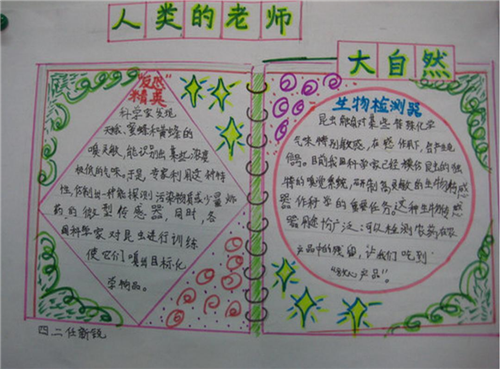 人类的老师
大自然
"反恐"
精英
科学家发现
天蛾、蜜蜂和黄蜂的
嗅觉灵敏,能识别出某些浓度
极低的气味,于是,专家利用这种特
性,仿制出一种能探测污染物或少量炸
药的微型传感器,同时,各
国科学家对昆虫进行训练
使它们嗅出目标化
学物品。
生物检测器
昆虫都会对某些特殊化学
气味特别敏感,在
号。目前我国科学家已经模仿昆虫的独
特的嗅觉系统,研制高灵敏的生物传感
器作科学的重要任务。这种生物传感
器用途广泛:可以检测农药在农
产品中的残留,让我们吃到
"放心产品"。
四二任新锐